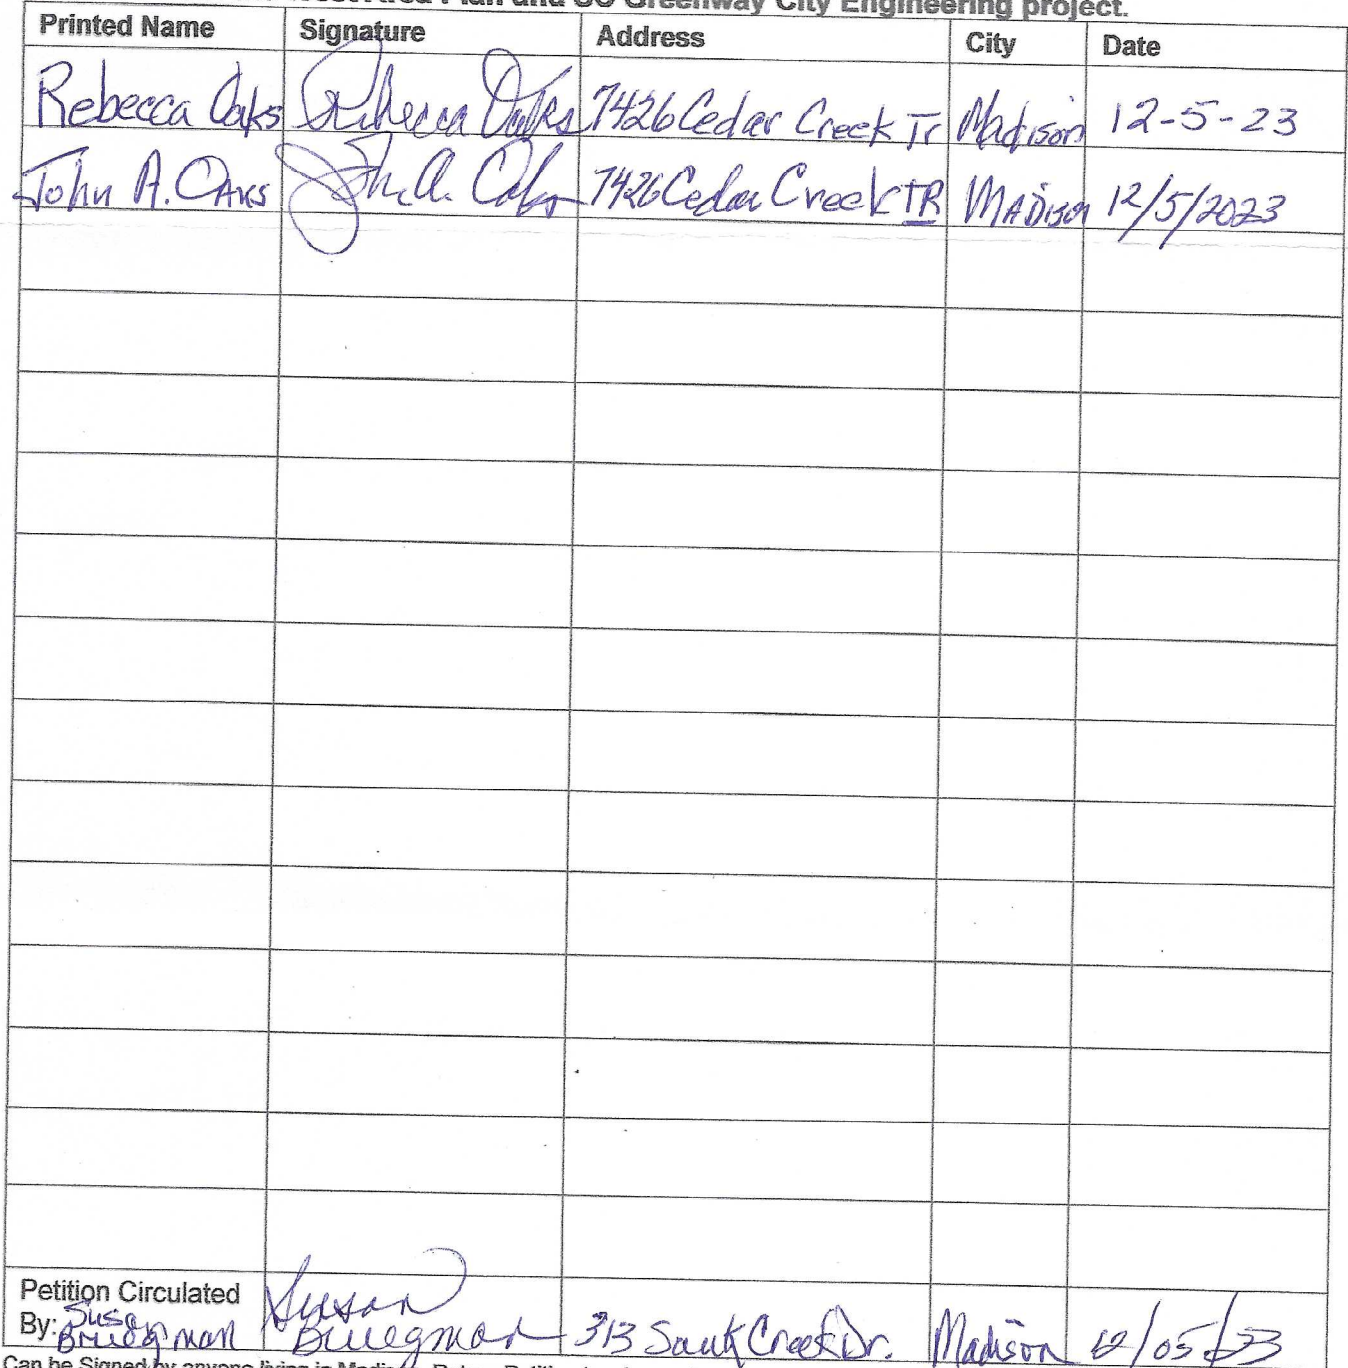 Area Plan and SC Greenway City Engineering project.
Printed Name Signature Address City Date
Rebecca Oaks Rebecca Oaks 7426 Cedar Creek Tr Madison 12-5-23
John A. Oaks John A. Oaks 7426 Cedar Creek TR Madison 12/5/2023
Petition Circulated
By: Susan Bruegman Susan Bruegman 313 Sauk Creek Dr. Madison 12/05/23
Can be Signed by anyone living in